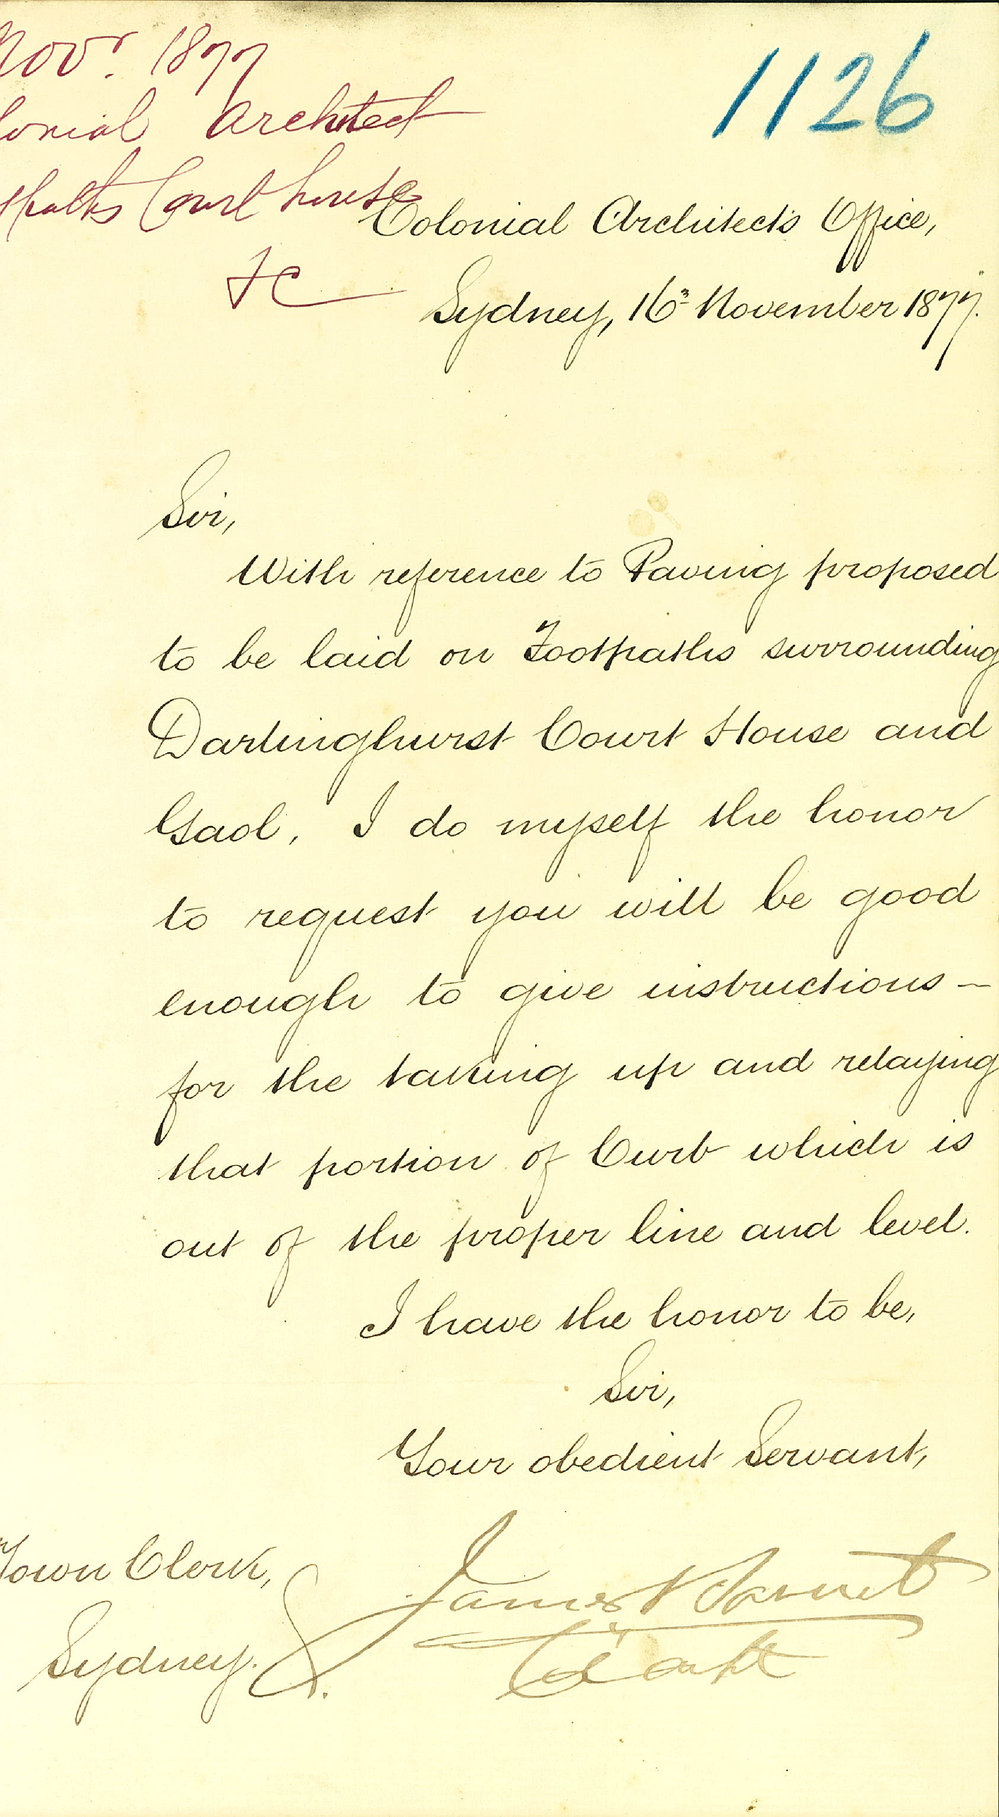 Novr. 1877
lonial Architect
paths Court house
1126
Colonial Architect's Office,
Sydney, 16 November 1877.
Sir,
With reference to Paving proposed
to be laid on Footpaths surrounding
Darlinghurst Court House and
Gaol, I do myself the honor
to request you will be good
enough to give instructions –
for the taking up and relaying
that portion of Curb which is
out of the proper line and level.
I have the honor to be,
Sir,
Your obedient Servant,
James Barnet
Town Clerk,
Sydney.